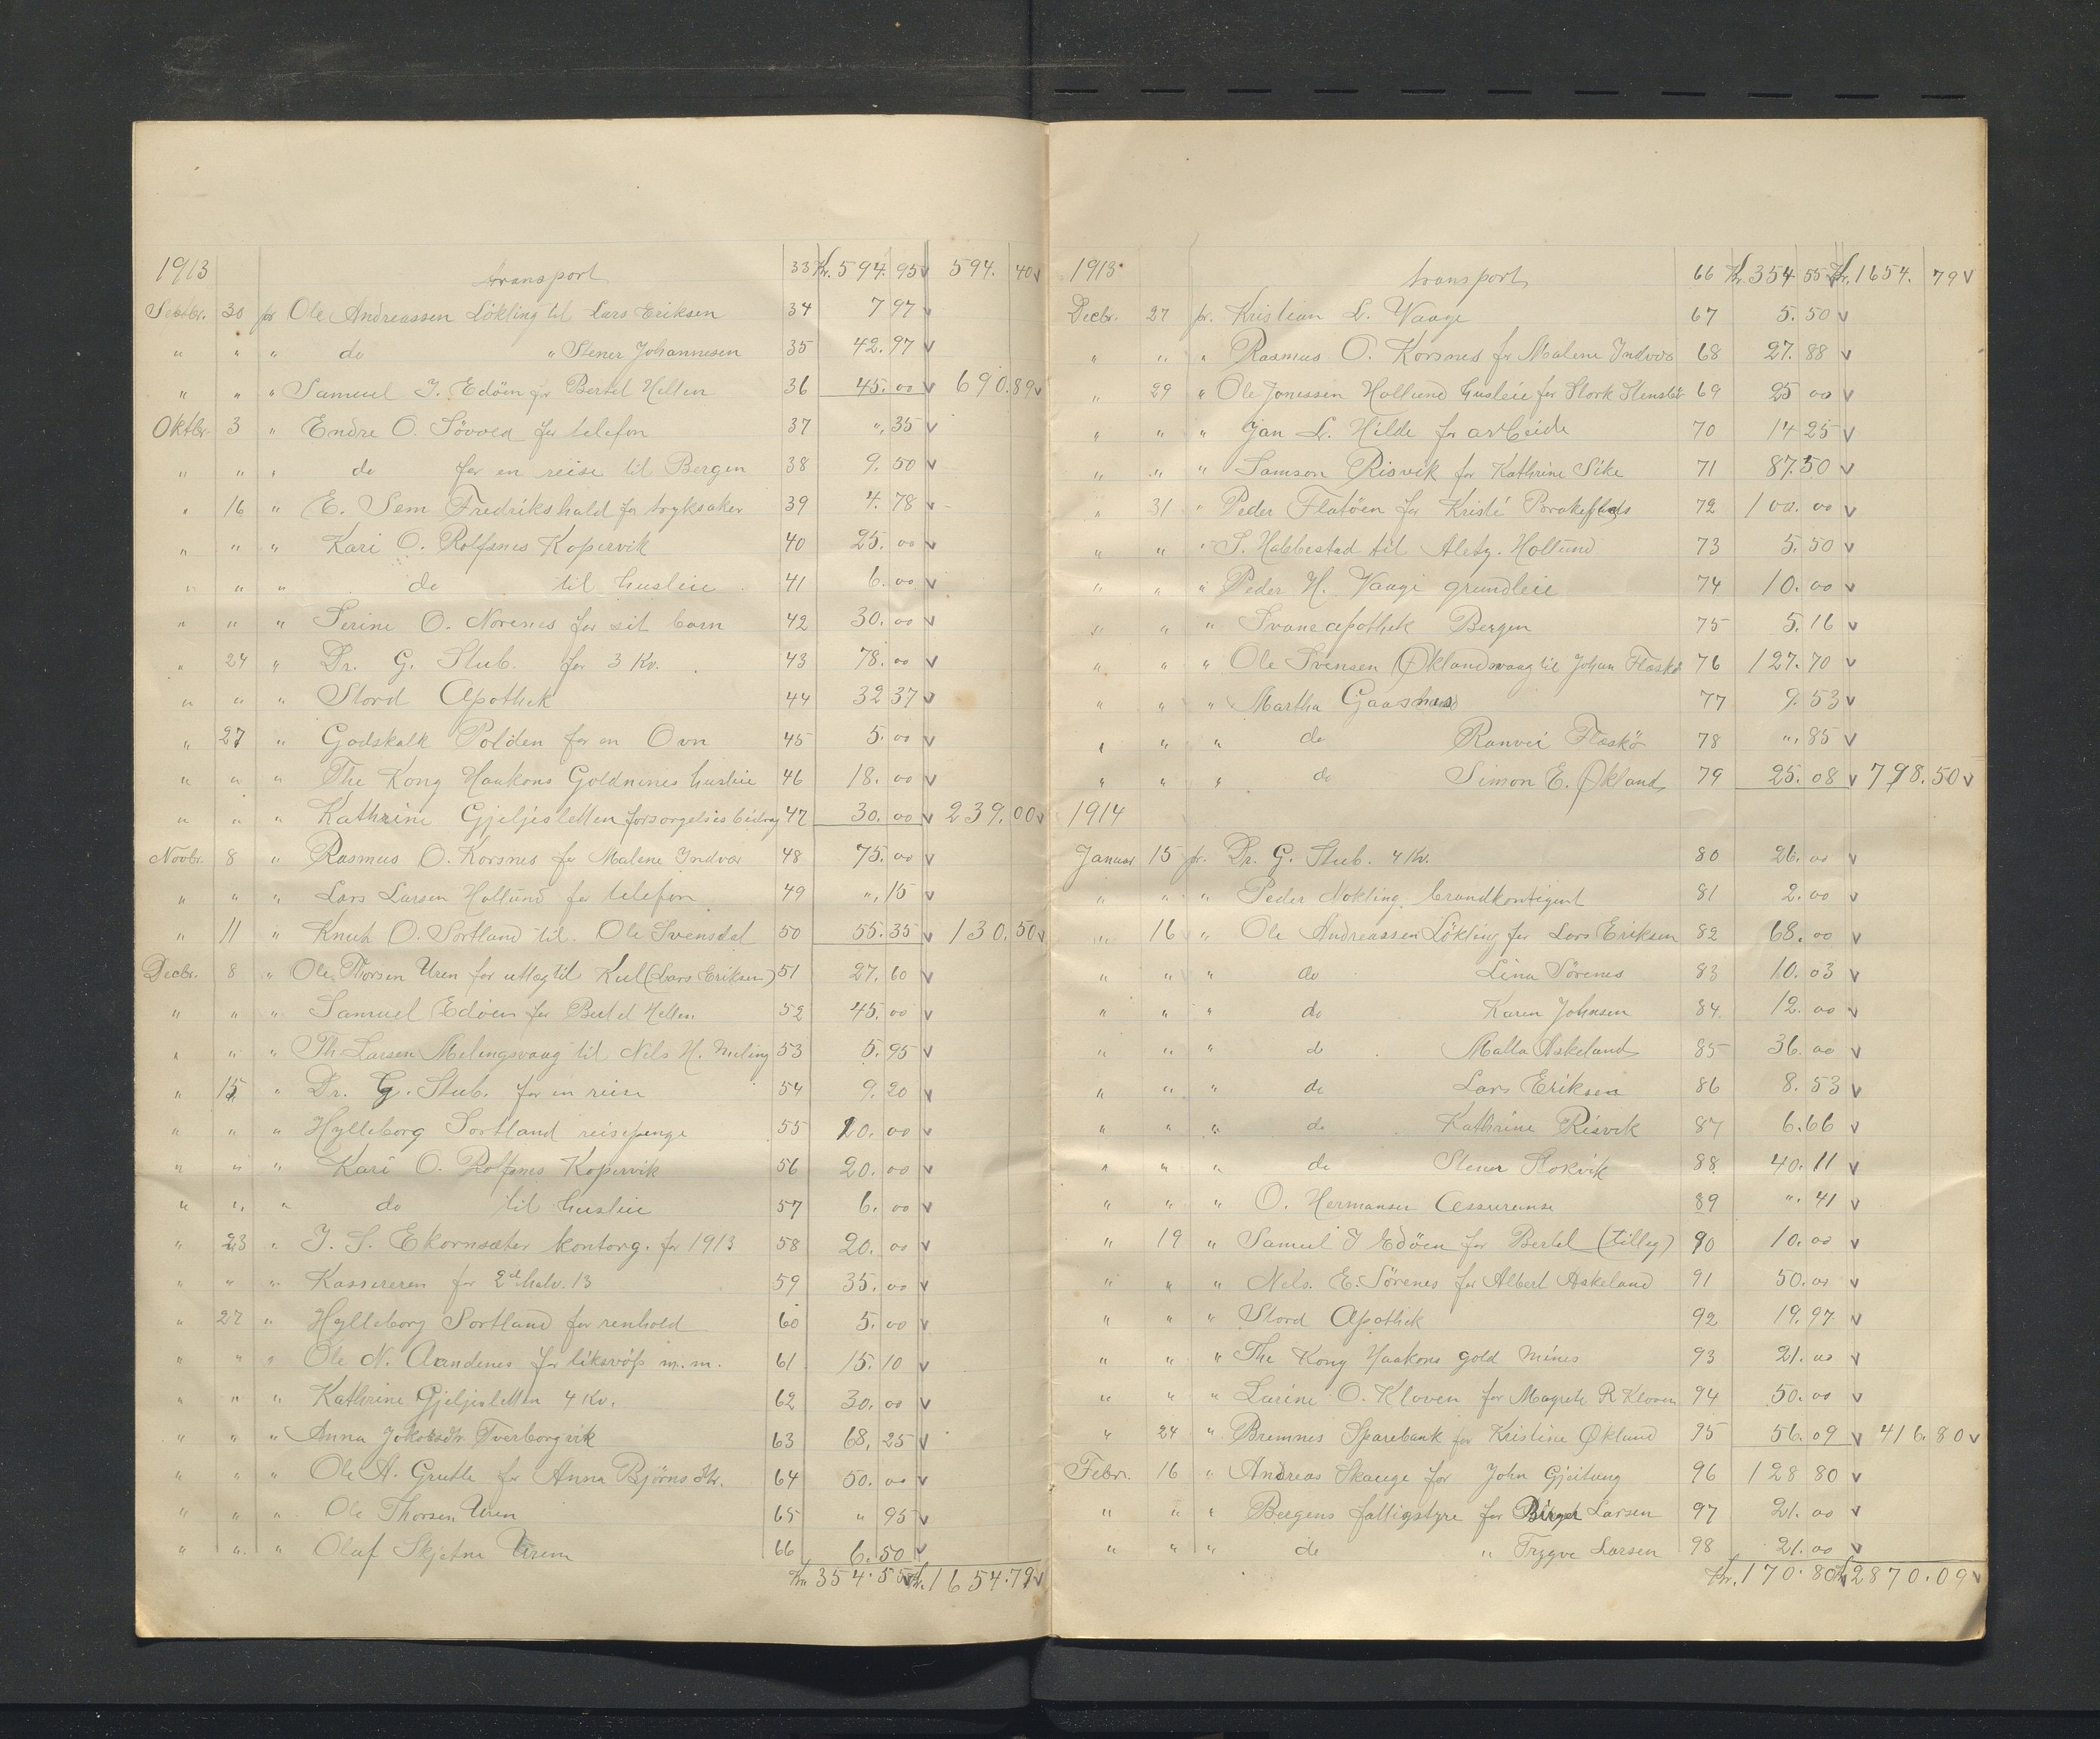 1913 transport 33 Kr. 594.95 594.40
Septbr. 30 pr Ole Andreassen Løkling til Lars Eriksen 34 7 97
" " " do " Stener Johannesen 35 42.97
" " " Samuel J. Edøen for Bertel Hellen 36 45.00 690.89
Oktbr. 3 " Endre O. Søvold for telefon 37 ",35
" " " do for en reise til Bergen 38 9.50
" 16 " E. Sem Fredrikshald for tryksaker 39 4.78
" " " Kari O. Rolfsnes Kopervik 40 25.00
" " " do til husleie 41 6.00
" " " Serine O. Norenes for sit barn 42 30.00
" 24 " Dr. G. Stub. for 3 Kv. 43 78.00
" " " Stord Apothek 44 32 37
" 27 " Godskalk Polden for en Ovn 45 5.00
" " " The Kong Haakons Goldmines husleie 46 18.00
" " " Kathrine Gjeljesletten forsørgelsesbidrag 47 30.00 239.00
Novbr. 8 " Rasmus O. Korsnes for Malene Indvær 48 75.00
" " " Lars Larsen Hollund for telefon 49 ",15
" 11 " Knut O. Sortland til Ole Svensdal 50 55.35 130.50
Decbr. 8 " Ole Thorsen Uren for uttag til Kul (Lars Eriksen) 51 27.60
" " " Samuel Edøen for Bertel Hellen 52 45.00
" " " Th. Larsen Melingsvaag til Nels H. Meling 53 5.95
" 15 " Dr. G. Stub. for en reise 54 9.20
" " " Hylleborg Sortland reisepenge 55 10.00
" " " Kari O. Rolfsnes Kopervik 56 20.00
" " " do til husleie 57 6.00
" 23 " J. S. Ekornsæter kontorg. for 1913 58 20.00
" " " Kassereren for 2det halv. 13 59 35.00
" 27 " Hylleborg Sortland for renhold 60 5.00
" " " Ole N. Aandenes for liksvøb m.m. 61 15.10
" " " Kathrine Gjeljesletten 4 Kv. 62 30.00
" " " Anna Jokobsdtr. Tverborgvik 63 68,25
" " " Ole A. Grutle for Anna Bjørnsdtr. 64 50.00
" " " Ole Thorsen Uren 65 " 95
" " " Olaf Skjetne Urem 66 6.50
Kr. 354.55 Kr. 1654.79
1913 transport 66 Kr. 354 55 Kr. 1654.79
Decbr. 27 pr. Kristian L. Vaage 67 5.50
" " " Rasmus O. Korsnes for Malene Indvær 68 27.88
" 29 " Ole Jonessen Hollund husleie for Stork Stensbø 69 25 00
" " " Jan L. Hilde for arbeide 70 14 25
" " " Samson Risvik for Kathrine Sike 71 87.50
" 31 " Peder Flatøen for Kristi 72 100.00
" " " S. Habbestad til Aletg. Hollund 73 5.50
" " " Peder H. Vaage grundleie 74 10.00
" " " Svaneapothek Bergen 75 5.16
" " " Ole Svensen Øklandsvaag til Johan Flaskø 76 127.70
" " " Martha Gaasnes 77 9.53
" " " do Ranvei Flaskø 78 ",85
" " " do Simon E. Økland 79 25.08 798.50
1914
Januar 15 pr. Dr. G. Stub. 4 Kv. 80 26.00
" " " Peder Nøkling. brandkontigent 81 2.00
" 16 " Ole Andreassen Løkling for Lars Eriksen 82 68.00
" " " do Lina Sørenes 83 10.03
" " " do Karen Johnsen 84 12.00
" " " do Malla Askeland 85 36.00
" " " do Lars Eriksen 86 8.53
" " " do Kathrine Risvik 87 6.66
" " " do Stener Stokvik 88 40.11
" " " O. Hermansen Assuranse 89 ".41
" 19 " Samuel J Edøen for Bertel (tilleg) 90 10.00
" " " Nels. E. Sørenes for Albert Askeland 91 50.00
" " " Stord Apothek 92 19.97
" " " The Kong Haakons gold mines 93 21.00
" " " Lurine O. Kloven for Magrete R Kloven 94 50.00
" 24 " Bremnes Sparebank for Kristine Økland 95 56.09 416.80
Febr. 16 " Andreas Skauge for John Gjeitung 96 128 80
" " " Bergens fattigstyre for Birger Larsen 97 21.00
" " " do " Trygve Larsen 98 21.00
Kr. 170.80 Kr. 2870.09